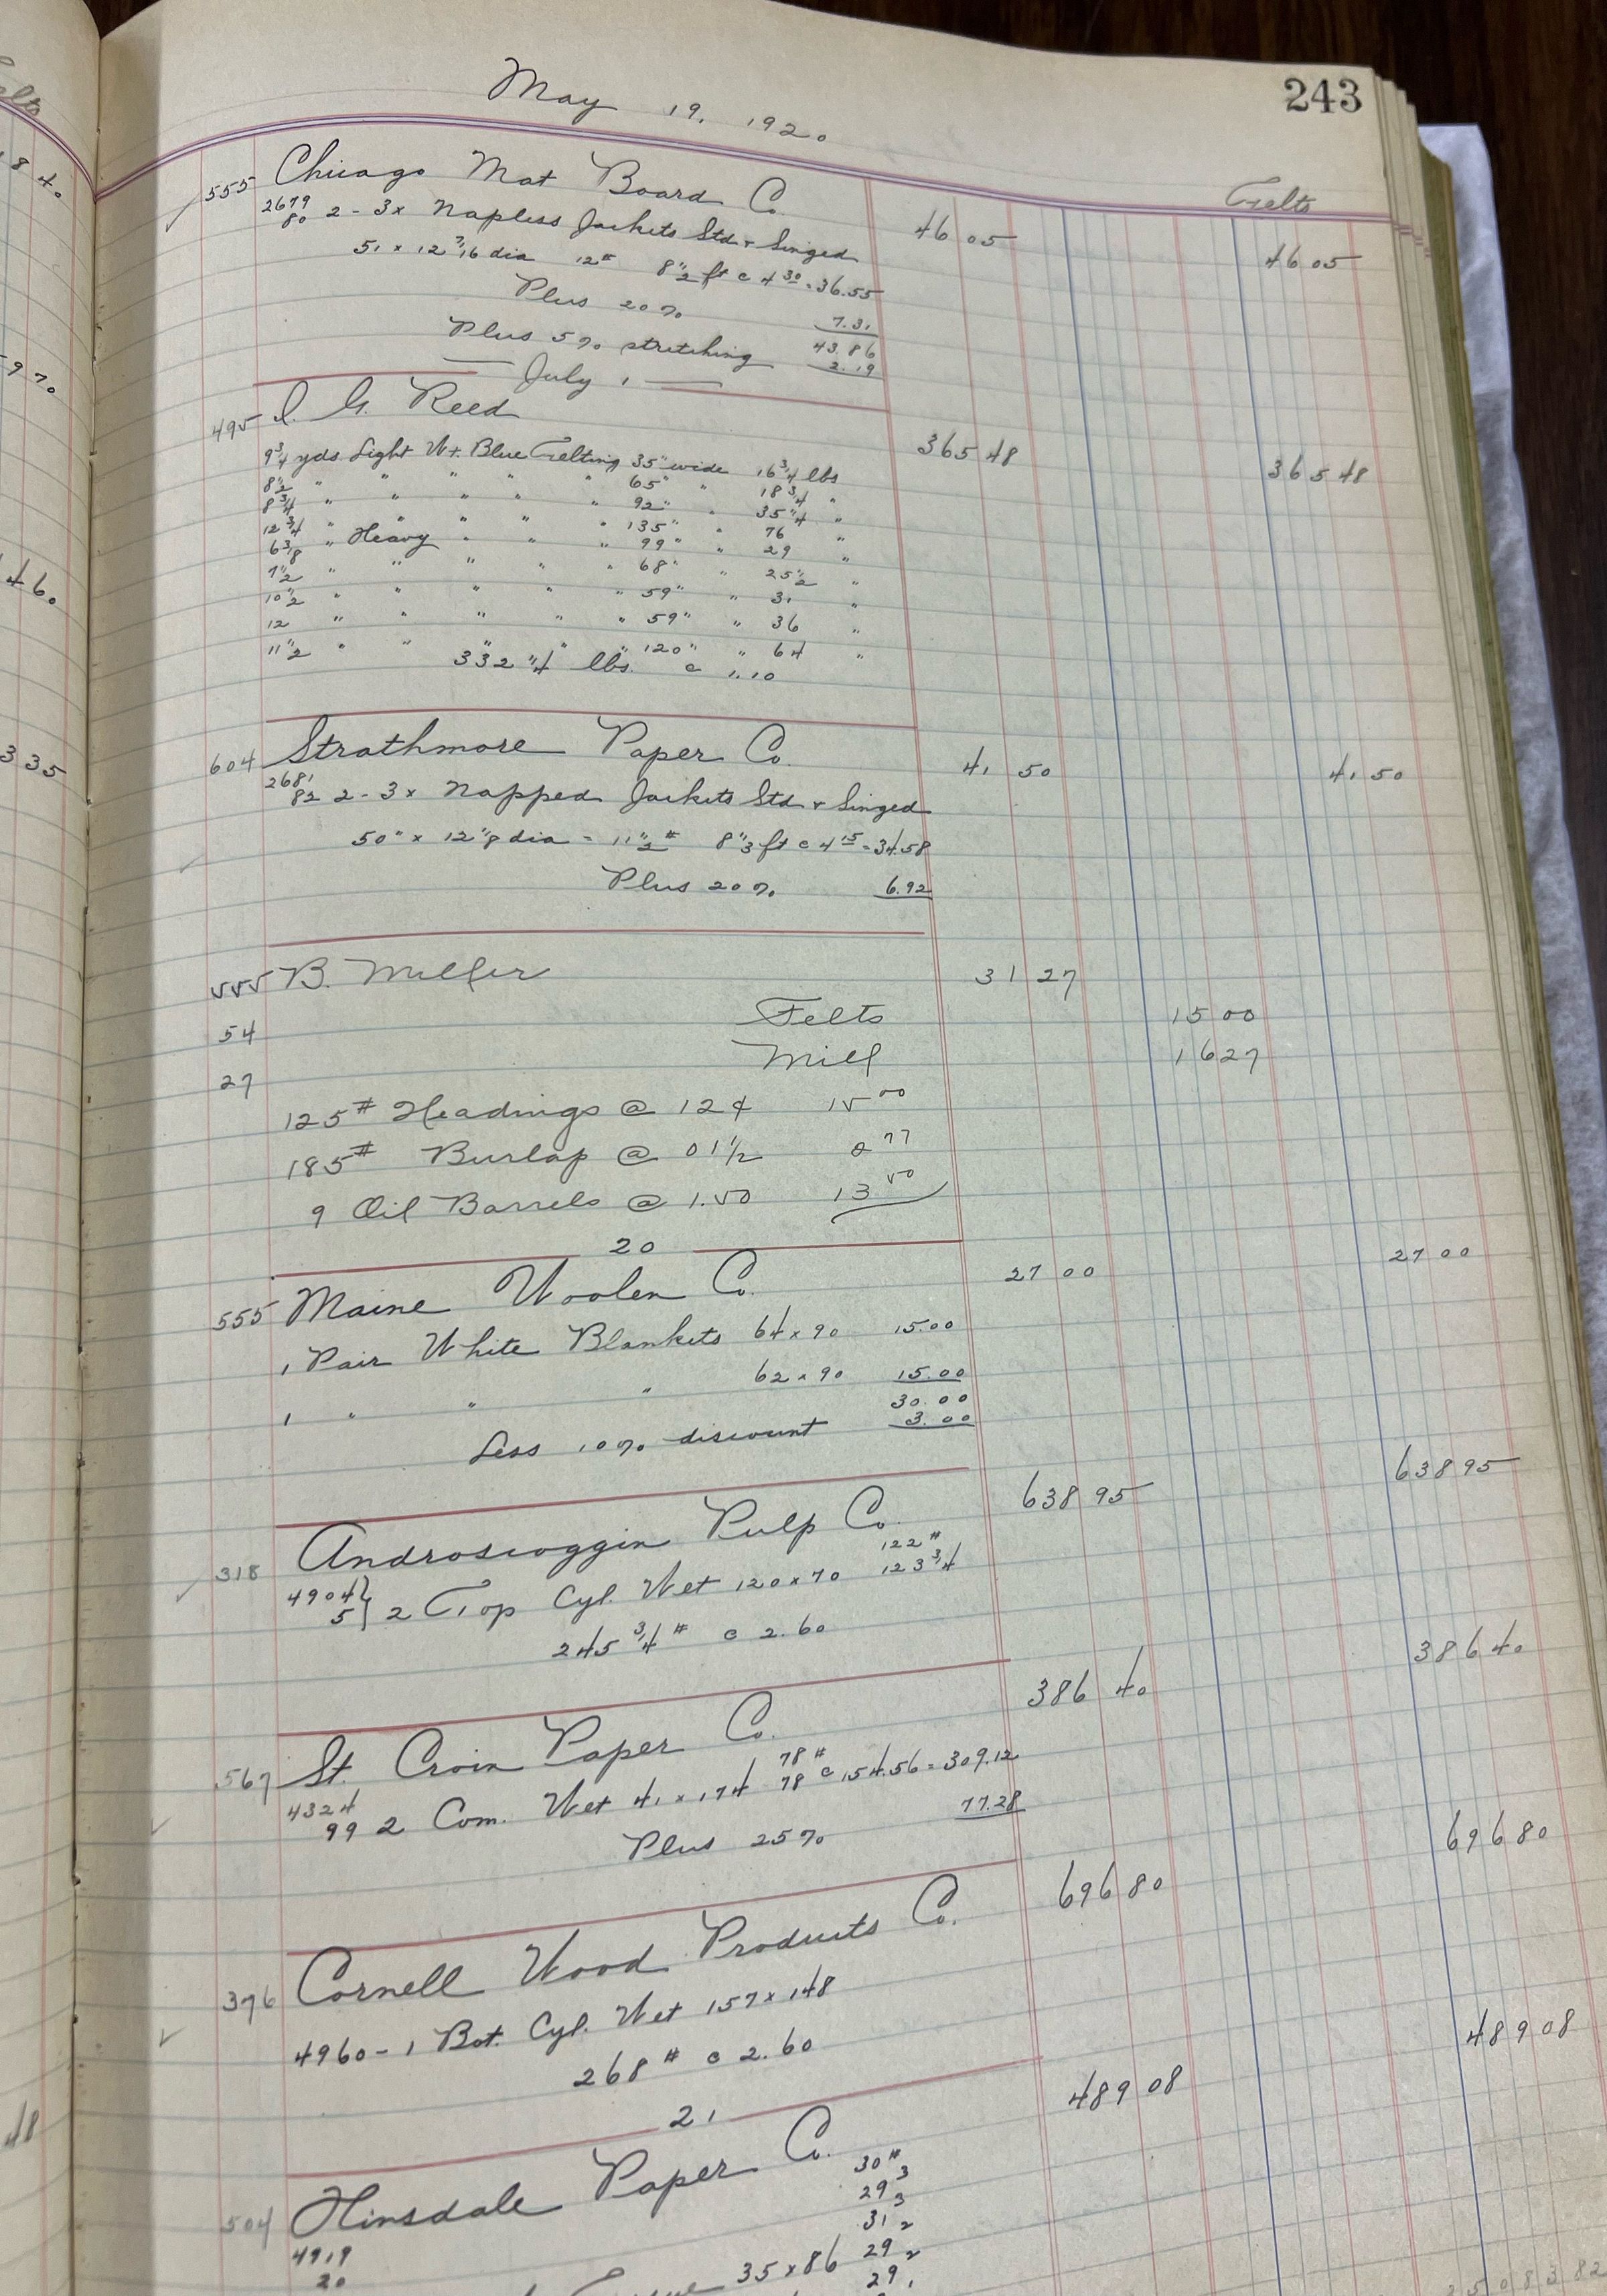 243
May 19. 1920
Felts
555 Chicago Mat Board Co. 46 05 46 05
2679
80 2 - 3x Napless Jackets Std & Singed
51 x 12 7/16 dia 12# 8 1/2 ft @ 4 30 = 36.55
Plus 20% 7.31
43.86
Plus 5% stretching 2.19
July 1
495 I. G. Reed 365 48 365 48
9 3/4 yds Light Wt. Blue Felting 35" wide 16 3/4 lbs
8 1/2 " " " " " 65" " 18 3/4 "
8 3/4 " " " " " 92" " 35 1/4 "
12 3/4 " " " " " 135" " 76 "
6 3/8 " Heavy " " " 99" " 29 "
7 1/2 " " " " " 68" " 25 1/2 "
10 1/2 " " " " " 59" " 31 "
12 " " " " " 59" " 36 "
11 1/2 " " " " " 120" " 64 "
332 1/4 lbs. @ 1.10
604 Strathmore Paper Co. 41 50 41 50
2681
82 2 - 3x Napped Jackets Std & Singed
50" x 12 1/8 dia = 11 1/2 # 8 1/3 ft @ 4 15 = 34.58
Plus 20% 6.92
555 B. Miller 31 27
54 Felts 15 00
27 Mill 16 27
125# Headings @ 12¢ 15 00
185# Burlap @ 01 1/2 2 77
9 Oil Barrels @ 1.50 13 50
20
555 Maine Woolen Co. 27 00 27 00
1 Pair White Blankets 64 x 90 15.00
1 " " " 62 x 90 15.00
30.00
Less 10% discount 3.00
318 Androscoggin Pulp Co. 638 95 638 95
122#
4904}
5} 2 Top Cyl. Wet 120 x 70 123 3/4
245 3/4 # @ 2.60
567 St. Croix Paper Co. 386 40 386 40
78#
4324
99 2 Com. Wet 41 x 174 78 @ 154.56 = 309.12
Plus 25% 77.28
376 Cornell Wood Products Co. 696 80 696 80
4960 - 1 Bot. Cyl. Wet 157 x 148
268 # @ 2.60
21
504 Hinsdale Paper Co. 489 08 489 08
30# 3
29 3
31 2
4919
20 35 x 86 29 2
29 1